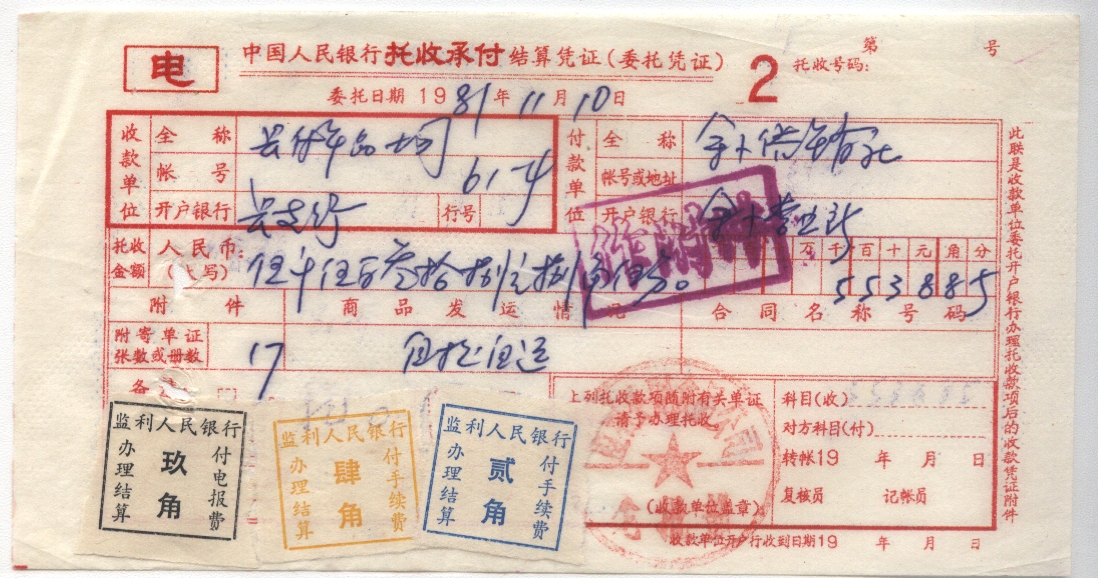 电
中国人民银行托收承付结算凭证(委托凭证)
2
第 号
托收号码:
委托日期 1981年11月10日
收款单位
全称
帐号 61-4
开户银行 县支行
行号
付款单位
全称
帐号或地址
开户银行
托收金额
人民币:(大写) 伍千伍百叁拾捌元捌角伍分
万千百十元角分
553885
作附件
附件
商品发运情况
合同名称号码
附寄单证张数或册数 17
自提自运
备
上列托收款项随附有关单证
请予办理托收
(收款单位盖章)
科目(收)
对方科目(付)
转帐19 年 月 日
复核员 记帐员
收款单位开户行收到日期19 年 月 日
此联是收款单位委托开户银行办理托收款项后的收款凭证附件
监利人民银行
办理结算
玖角
付电报费
监利人民银行
办理结算
肆角
付手续费
监利人民银行
办理结算
贰角
付手续费